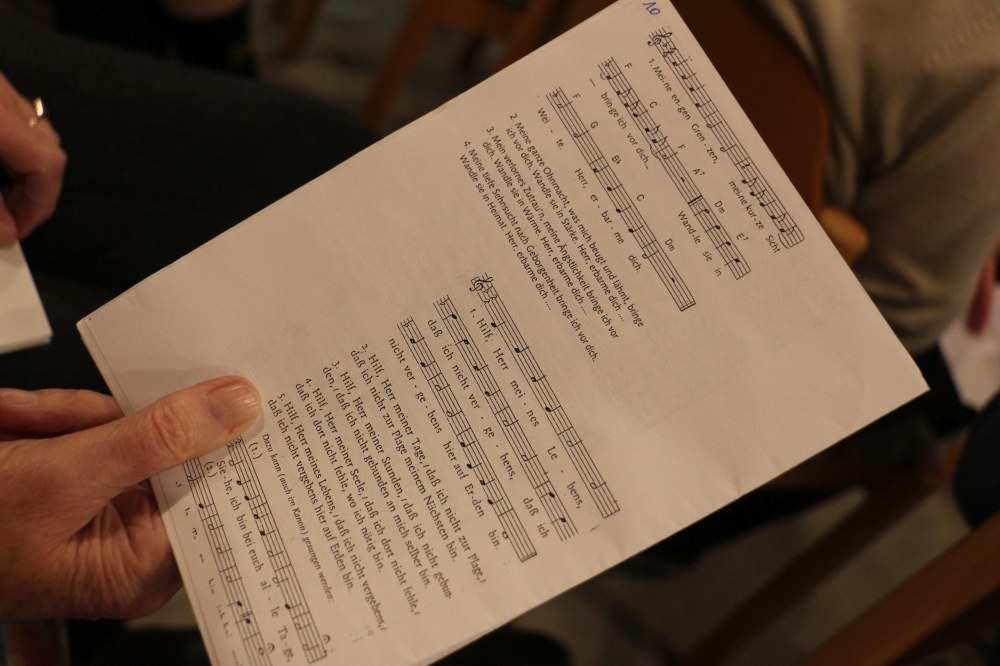 10
1. Mei-ne en-gen Gren - zen, mei-ne kur-ze Sicht
F C F A7 Dm E7
bringe ich vor dich. Wand-le sie in
F G B♭ C Dm
Wei - te. Herr, er - bar - me dich.
2. Meine ganze Ohnmacht, was mich beugt und lähmt, bringe
ich vor dich. Wandle sie in Stärke. Herr, erbarme dich ....
3. Mein verlornes Zutrau'n, meine Ängstlichkeit bringe ich vor
dich. Wandle sie in Wärme. Herr, erbarme dich ....
4. Meine tiefe Sehnsucht nach Geborgenheit bringe ich vor dich.
Wandle sie in Heimat. Herr, erbarme dich ....
1. Hilf, Herr mei - nes Le - bens,
daß ich nicht ver - ge - bens, daß ich
nicht ver - ge - bens hier auf Er-den bin.
2. Hilf, Herr meiner Tage, / daß ich nicht zur Plage, /
daß ich nicht zur Plage meinem Nächsten bin.
3. Hilf, Herr meiner Stunden, / daß ich nicht gebun-
den, / daß ich nicht gebunden an mich selber bin.
4. Hilf, Herr meiner Seele, / daß ich dort nicht fehle, /
daß ich dort nicht fehle, wo ich nötig bin.
5. Hilf, Herr meines Lebens, / daß ich nicht vergebens, /
daß ich nicht vergebens hier auf Erden bin.
Dazu kann (auch im Kanon) gesungen werden:
(1.)
Sie - he, ich bin bei euch al - le Ta - ge,
(2.)